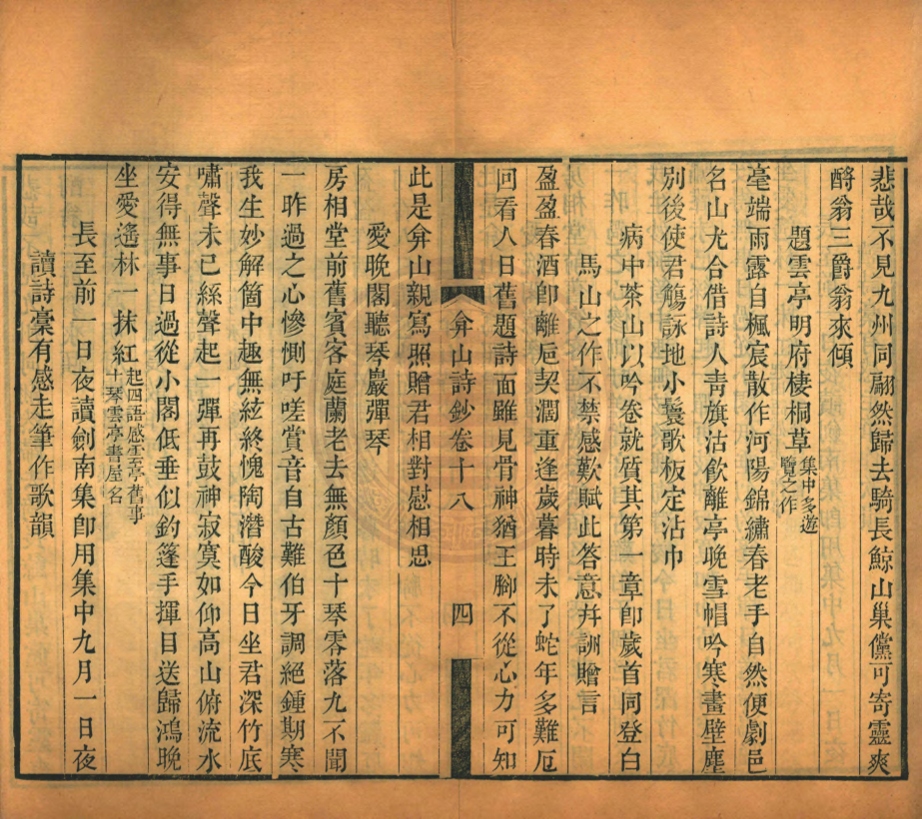 悲哉不見九州同翩然歸去騎長鯨山巢儻可寄靈爽
酹翁三爵翁來傾
題雲亭明府棲桐草集中多遊覽之作
毫端雨露自楓宸散作河陽錦繡春老手自然便劇邑
名山尤合借詩人靑旗沽飮離亭晚雪帽吟寒畫壁塵
別後使君觴詠地小鬟歌板定沾巾
病中茶山以吟卷就質其第一章卽歲首同登白
馬山之作不禁感歎賦此答意幷訓贈言
盈盈春酒卽離卮契濶重逢歲暮時未了蛇年多難厄
回看人日舊題詩面雖見骨神猶王腳不從心力可知
此是弇山親寫照贈君相對慰相思
愛晚閣聽琴巖彈琴
弇山詩鈔卷十八
四
房相堂前舊賓客庭蘭老去無顏色十琴零落九不聞
一昨過之心慘惻吁嗟賞音自古難伯牙調絕鍾期寒
我生妙解箇中趣無絃終愧陶潛酸今日坐君深竹底
嘯聲未已絲聲起一彈再鼓神寂寞如仰高山俯流水
安得無事日過從小閣低垂似釣篷手揮目送歸鴻晚
坐愛遙林一抹紅起四語感雲亭舊事十琴雲亭書屋名
長至前一日夜讀劍南集卽用集中九月一日夜
讀詩稾有感走筆作歌韻